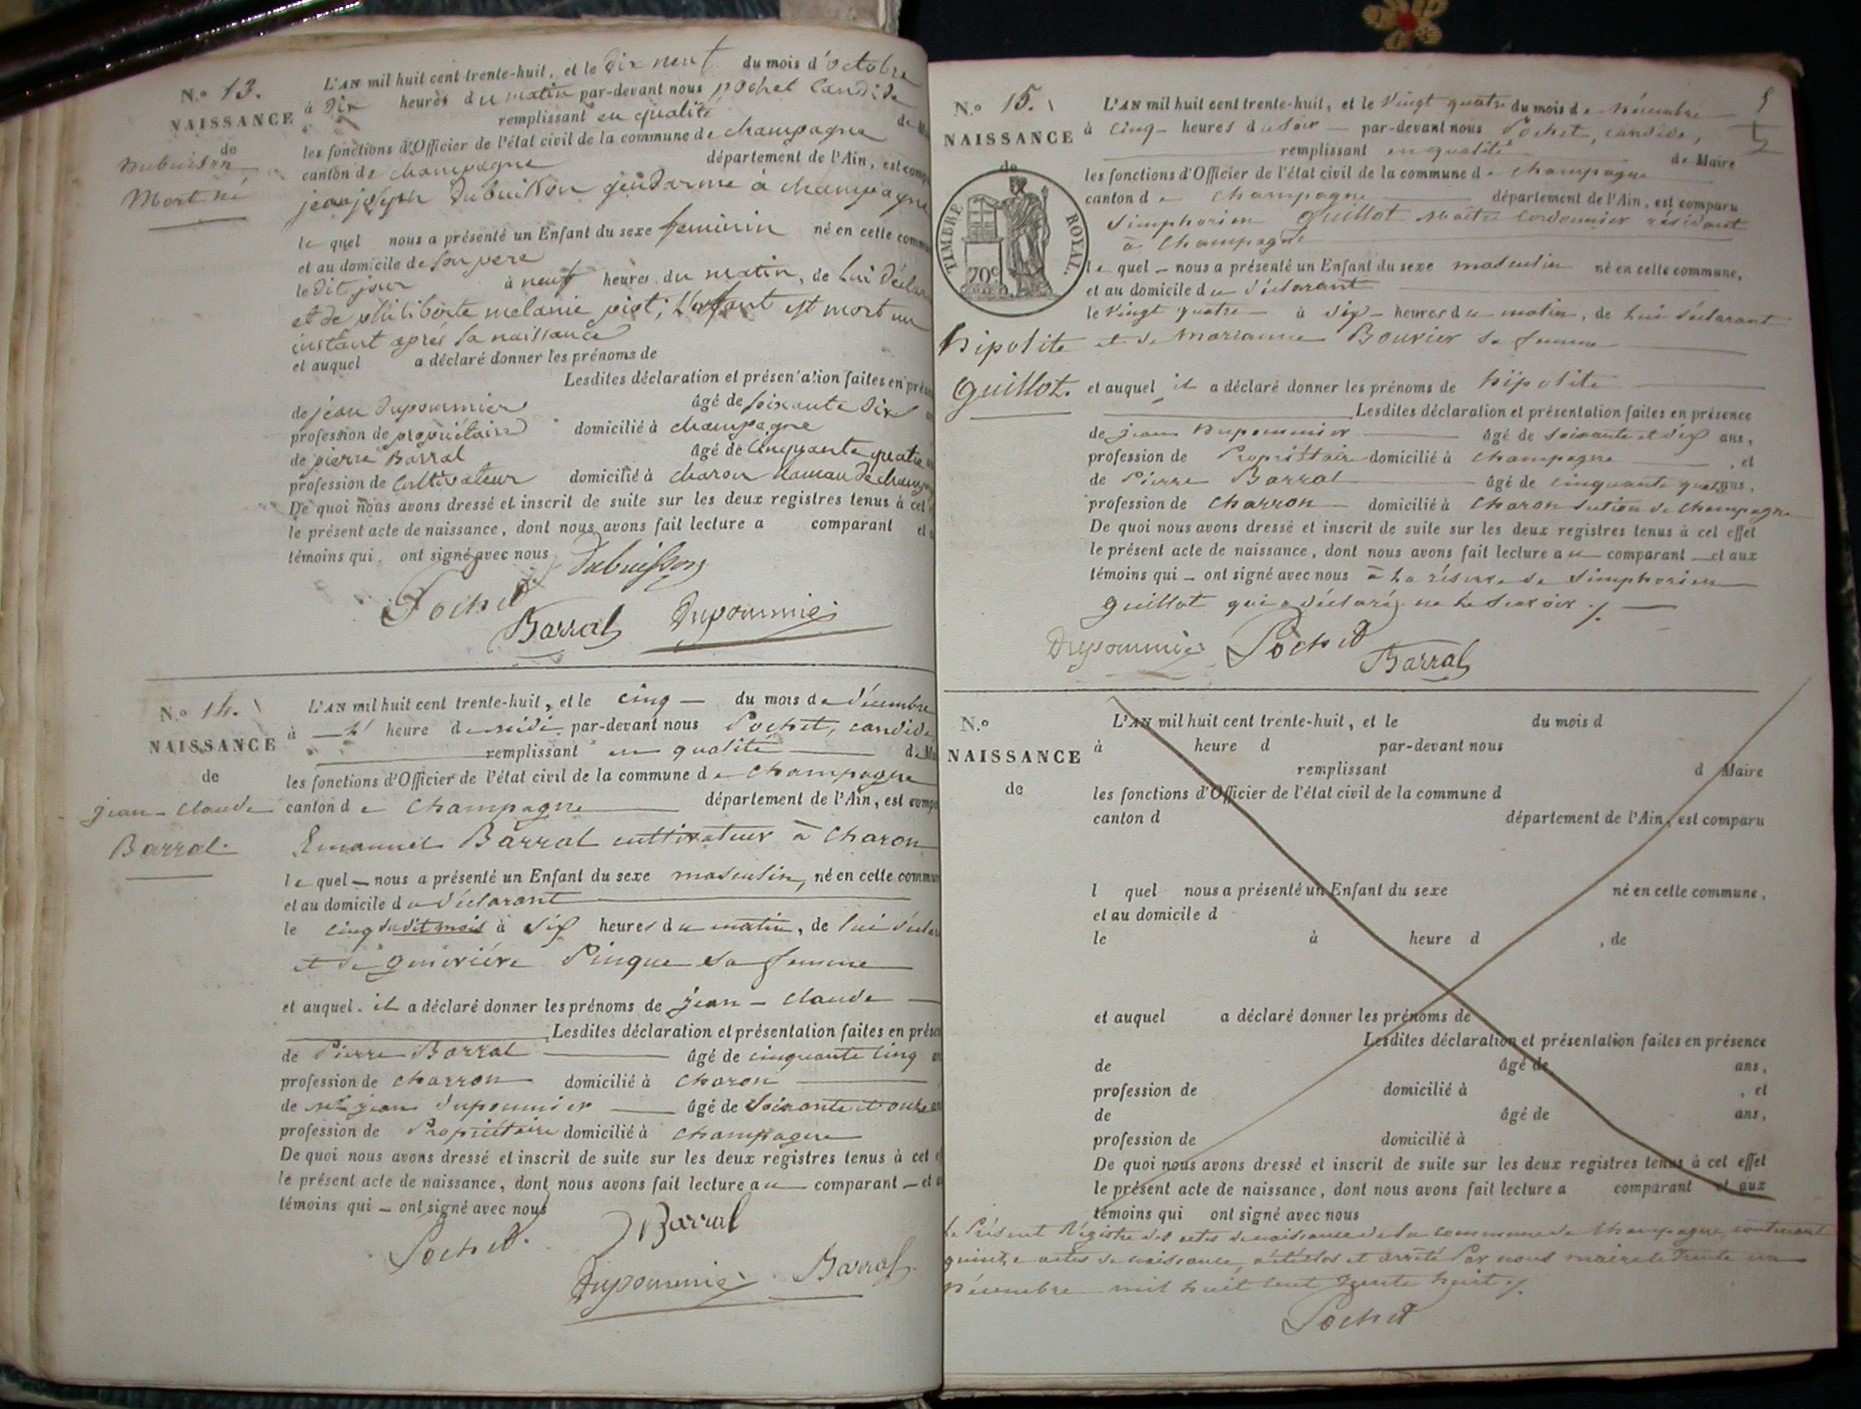 N.o 13.
NAISSANCE
de
Dubuisson
Mort né
L'AN mil huit cent trente-huit, et le dix neuf du mois d'octobre
à Dix heures du matin par-devant nous pochet Candide
remplissant en qualité de M
les fonctions d'Officier de l'état civil de la commune de champagne
canton de champagne département de l'Ain, est comp
jean joseph Dubuisson gendarme à champagne
le quel nous a présenté un Enfant du sexe feminin né en cette commu
et au domicile de son père
le dit jour à neuf heures du matin, de lui déclar
et de philiberte melanie piot; L'enfant est mort un
instant après sa naissance
et auquel a déclaré donner les prénoms de
Lesdites déclaration et présentation faites en prés
de jean Dupommier âgé de soixante dix
profession de propriétaire domicilié à champagne
de pierre Barral âgé de cinquante quatre
profession de Cultivateur domicilié à charon hameau de champ
De quoi nous avons dressé et inscrit de suite sur les deux registres tenus à cet
le présent acte de naissance, dont nous avons fait lecture a comparant et
témoins qui ont signé avec nous
Dubuisson
Pochet
Barral Dupommier
N.o 14.
NAISSANCE
de
jean-claude
Barral.
L'AN mil huit cent trente-huit, et le cinq du mois de décembre
à heure de midi par-devant nous Pochet, candide
remplissant en qualité de Ma
les fonctions d'Officier de l'état civil de la commune de champagne
canton de champagne département de l'Ain, est comp
Emanuel Barral cultivateur à Charon
le quel nous a présenté un Enfant du sexe masculin, né en cette commun
et au domicile du déclarant
le cinq dudit mois à six heures du matin, de lui déclar
et de geneviève Pinque sa femme
et auquel il a déclaré donner les prénoms de jean - claude
Lesdites déclaration et présentation faites en prése
de Pierre Barral âgé de cinquante cinq
profession de charron domicilié à charon
de jean Dupommier âgé de soixante et onze
profession de Propriétaire domicilié à champagne
De quoi nous avons dressé et inscrit de suite sur les deux registres tenus à cet
le présent acte de naissance, dont nous avons fait lecture au comparant et
témoins qui ont signé avec nous
Barral
Pochet.
Dupommier Barral
N.o 15.
NAISSANCE
de
TIMBRE ROYAL.
70c
hipolite
Guillot.
L'AN mil huit cent trente-huit, et le vingt quatre du mois de décembre
à cinq heures du soir par-devant nous Pochet, candide,
remplissant en qualité de Maire
les fonctions d'Officier de l'état civil de la commune de champagne
canton de champagne département de l'Ain, est comparu
Simphorien Guillot maître cordonnier résidant
à champagne
le quel nous a présenté un Enfant du sexe masculin né en cette commune,
et au domicile du déclarant
le vingt quatre à six heures du matin, de lui déclarant
et de marianne Bouvier sa femme
et auquel il a déclaré donner les prénoms de hipolite
Lesdites déclaration et présentation faites en présence
de jean Dupommier âgé de soixante et dix ans,
profession de Propriétaire domicilié à champagne, et
de Pierre Barral âgé de cinquante quatre ans,
profession de charron domicilié à charon section de champagne
De quoi nous avons dressé et inscrit de suite sur les deux registres tenus à cet effet
le présent acte de naissance, dont nous avons fait lecture au comparant et aux
témoins qui ont signé avec nous à la réserve de Simphorien
Guillot qui a déclaré ne le savoir
Dupommier Pochet
Barral
N.o
NAISSANCE
de
L'AN mil huit cent trente-huit, et le du mois d
à heure d par-devant nous
remplissant d Maire
les fonctions d'Officier de l'état civil de la commune d
canton d département de l'Ain, est comparu
l quel nous a présenté un Enfant du sexe né en cette commune,
et au domicile d
le à heure d , de
et auquel a déclaré donner les prénoms de
Lesdites déclaration et présentation faites en présence
de âgé de ans,
profession de domicilié à , et
de âgé de ans,
profession de domicilié à
De quoi nous avons dressé et inscrit de suite sur les deux registres tenus à cet effet
le présent acte de naissance, dont nous avons fait lecture a comparant et aux
témoins qui ont signé avec nous
le Présent Régistre des actes de naissance de la commune de Champagne, contenant
quinze actes de naissance, a été clos et arrêté Par nous maire le trente un
Décembre mil huit cent trente huit
Pochet